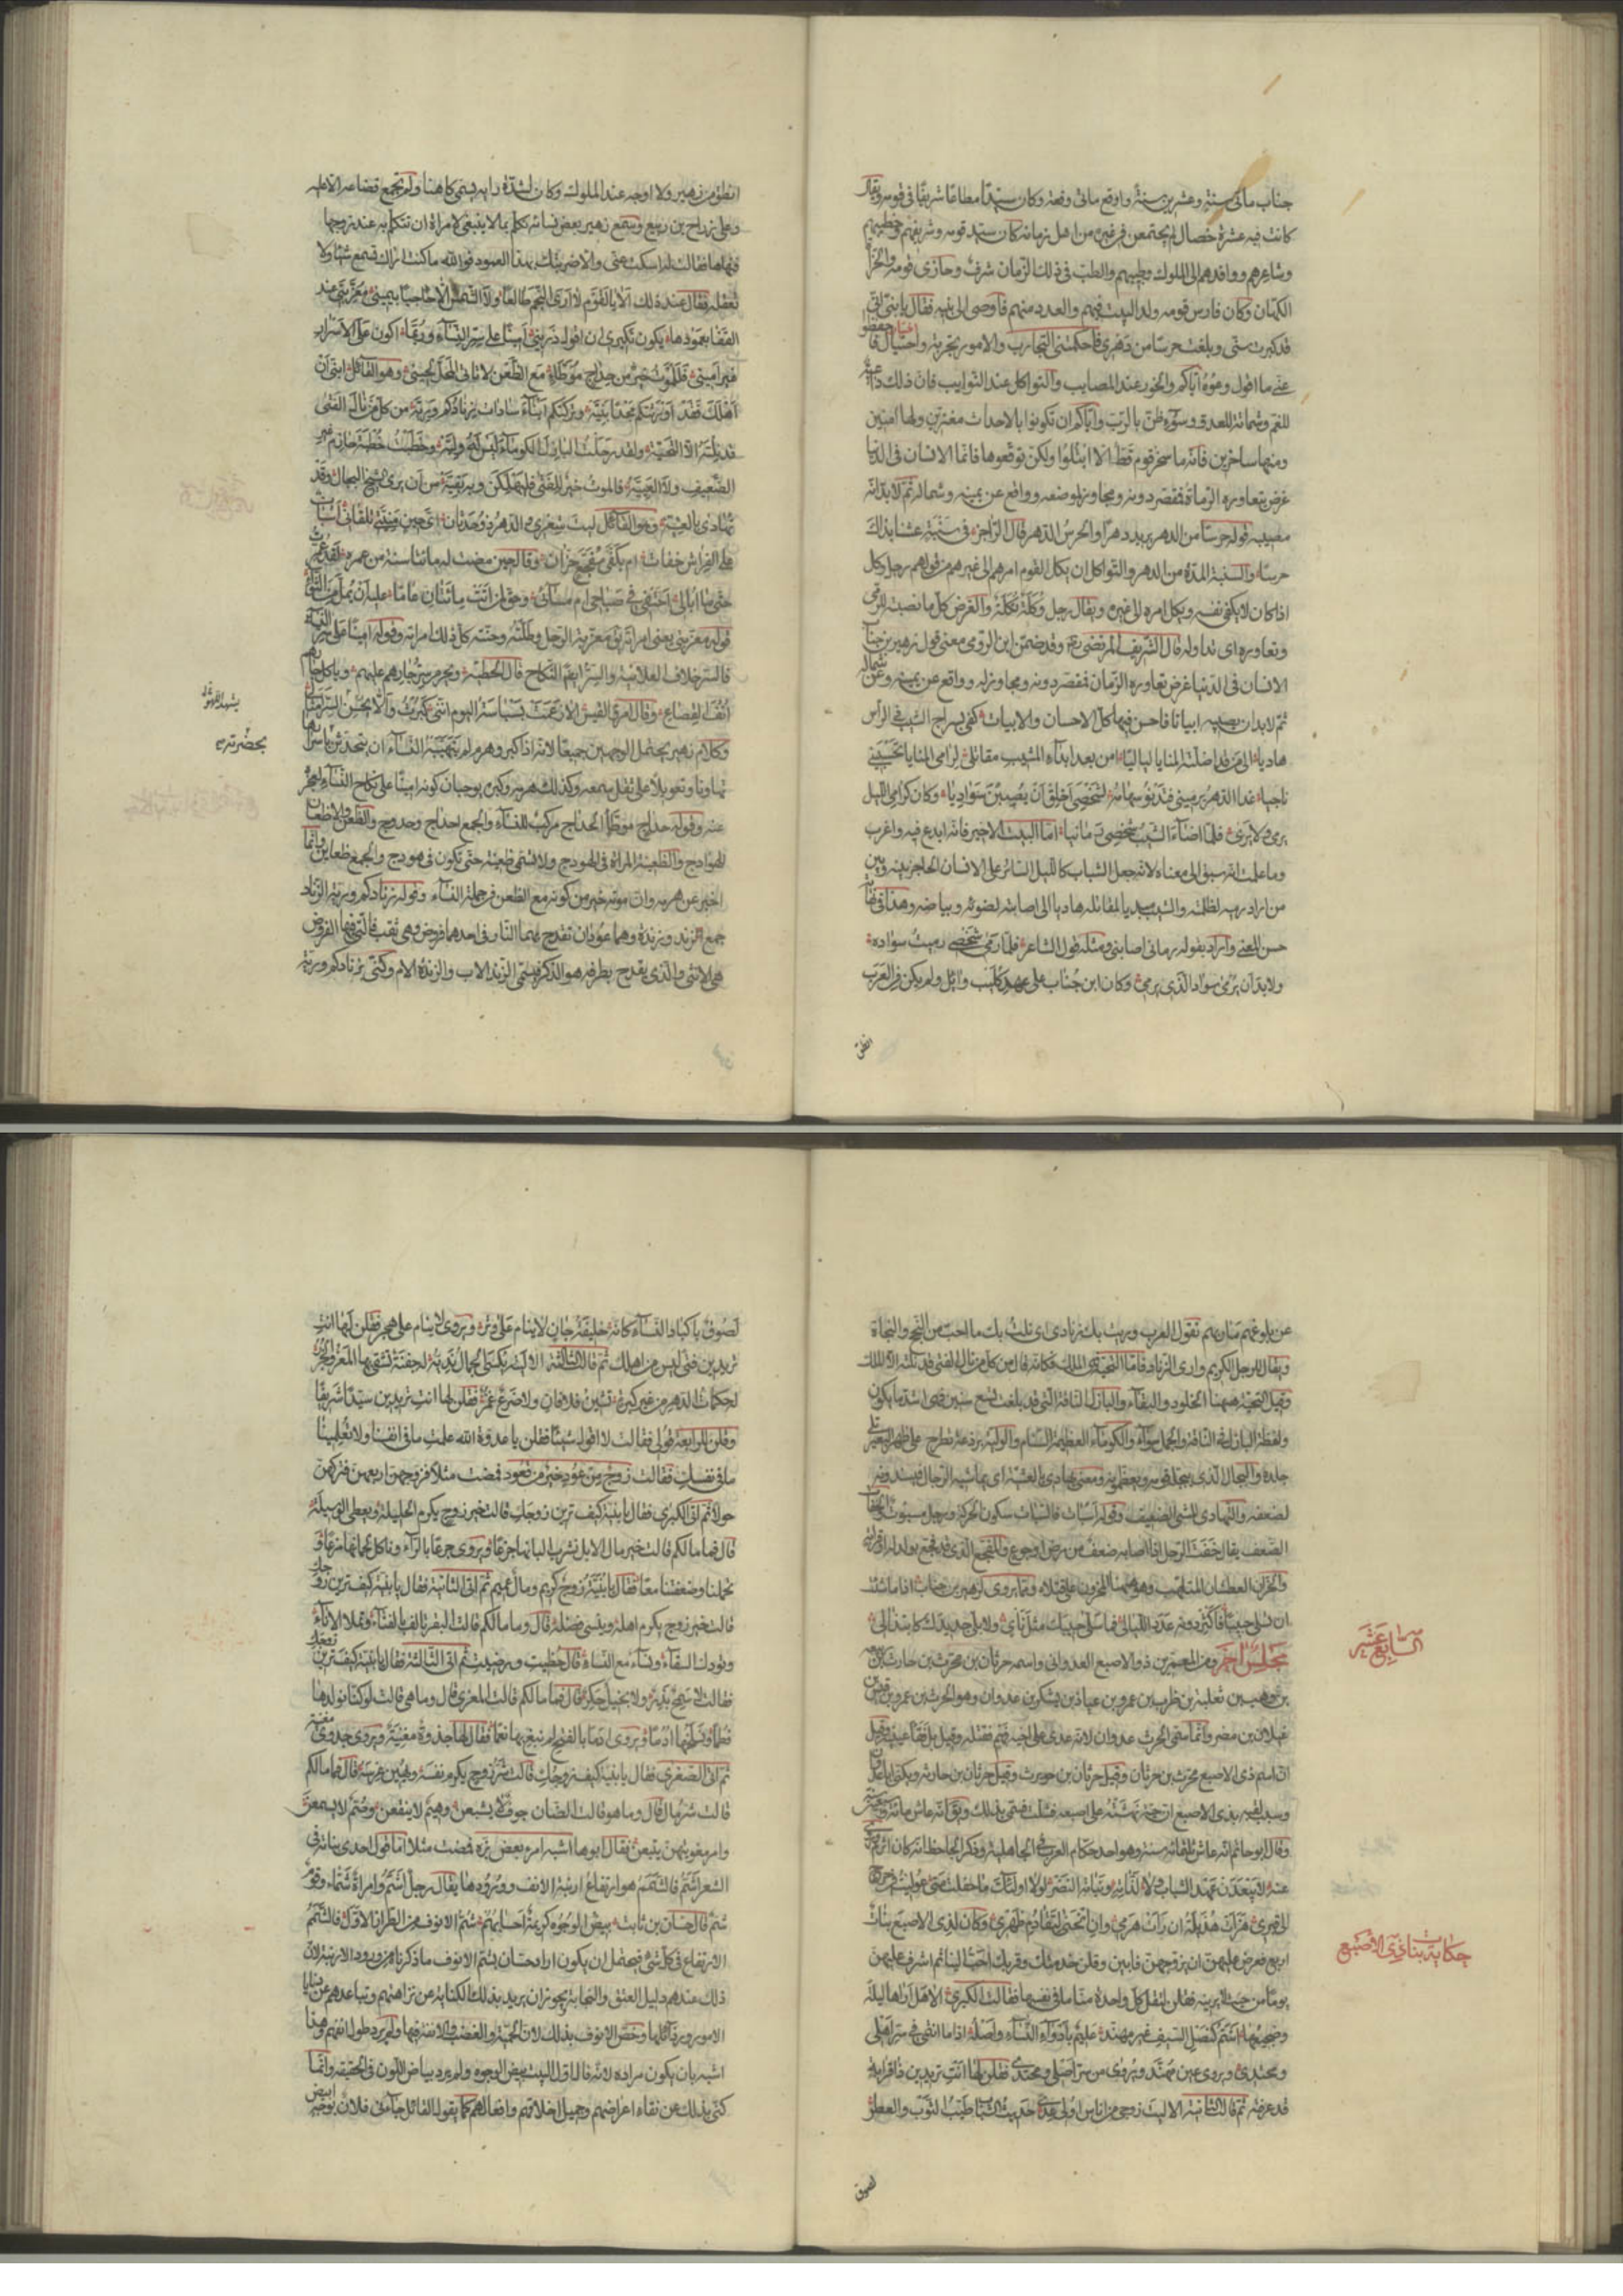 جناب مائتى سنة وعشرين سنة وواقع مائتى وقعة وكان سيدا مطاعا شريفا فى قومه ويقال
كانت فيه عشرة خصال لم يجتمعن فى غيره من اهل زمانه كان سيد قومه وشريفهم وخطيبهم
وشاعرهم ووافدهم الى الملوك وطبيبهم والطب فى ذلك الزمان شرف وحازى قومه والحزاة
الكهان وكان فارس قومه وله البيت فيهم والعدد منهم فاوصى الى بنيه فقال يا بنى انى
قد كبرت سنى وبلغت حرسا من دهرى فاحكمتنى التجارب والامور تجربة واحتيال فاحفظوا
عنى ما اقول وعوه اياكم والخور عند المصايب والتواكل عند النوايب فان ذلك داعية
للغم وشماتة للعدو وسوء ظن بالرب واياكم ان تكونوا بالاحداث مغترين ولها امنين
ومنها ساخرين فانه ما سخر قوم قط الا ابتلوا ولكن توقعوها فانما الانسان فى الدنيا
غرض تعاوره الرماة فمقصر دونه ومجاوز لموضعه وواقع عن يمينه وشماله ثم لا بد انه
مصيبه قوله حرسا من الدهر يريد دهرا والحرس الدهر قال الراجز فى سنبة عشنا بذاك
حرسا والسنبة المدة من الدهر والتواكل ان يكل القوم امرهم الى غيرهم من قولهم رجل وكل
اذا كان لا يكفى نفسه ويكل امره الى غيره ويقال رجل وكلة تكلة والغرض كل ما نصبته للرمى
وتعاوره اى تداوله قال الشريف المرتضى ره وقد ضمن ابن الرومى معنى قول زهير بن جناب
الانسان فى الدنيا غرض تعاوره الزمان فمقصر دونه ومجاوز له وواقع عن يمينه وعن شماله
ثم لا بد ان يصيبه ابياتا فاحسن فيها كل الاحسان والابيات كفى بسراج الشيب فى الراس
هاديا الى من قد اضلته المنايا لياليا امن بعد ابداء المشيب مقاتلى لرامى المنايا تحسبينى
ناجيا غدا الدهر يرمينى فتدنو سهامه لشخصى اخلق ان يصبن سواديا وكان كرامى الليل
يرمى ولا يرى فلما اضاء الشيب شخصى رمانيا اما البيت الاخير فانه ابدع فيه واغرب
وما علمت انه سبق الى معناه لانه جعل الشباب كالليل الساتر على الانسان الحاجز بينه وبين
من اراد رميه لظلمته والشيب مبديا لمقاتله هاديا الى اصابته لضوئه وبياضه وهذا فى نهاية
حسن المعنى واراد بقوله رمانى اصابنى ومثله قول الشاعر فلما رمى شخصى رميت سواده
ولا بد ان يرمى سواد الذى يرمى وكان ابن جناب على عهد كليب وائل ولم يكن فى العرب
انطق
انطق من زهير ولا اوجه عند الملوك وكان لشدة رايه يسمى كاهنا ولم تجتمع قضاعة الا عليه
وعلى رزاح بن ربيع وسمع زهير بعض نسائه تكلم بما لا ينبغى لامراة ان تتكلم به عند زوجها
فنهاها فقالت له اسكت عنى والا ضربتك بهذا العمود فوالله ما كنت اراك تسمع شيئا ولا
تعقله فقال عند ذلك الا يا لقوم لا ارى النجم طالعا ولا الشمس الا حاجبا بيمينى معزبتى عند
القفا بعمودها يكون نكيرى ان اقول ذرينى امينا على سر النساء وربما اكون على الاسرار
غير امينى فللموت خير من حداج موطا مع الظعن لا ياتى المحل لحينى وهو القائل ابنى ان
اهلك فقد اورثتكم مجدا بنية وتركتكم ابناء سادات زنادكم ورية من كل ما نال الفتى
قد نلته الا التحية ولقد رحلت البازل الكوماء ليس لها ولية وخطبت خطبة حازم غير
الضعيف ولا العيية فالموت خير للفتى فليهلكن وبه بقية من ان يرى الشيخ البجال وقد
يهادى بالعشية وهو القائل ليت شعرى والدهر ذو حدثان اى حين منيتى تلقانى اسبات
على الفراش خفات ام بكفى مفجع حران وقال حين مضت له مائتا سنة من عمره لقد عمرت
حتى ما ابالى احتفى فى صباحى ام مسائى وحق لمن اتت مائتان عاما عليه ان يمل من الثواء
قوله معزبتى يعنى امراته يق معزبة الرجل وطلته وحنته كل ذلك امراته وقوله امينا على سر النساء
فالسر خلاف العلانية والسر ايضا النكاح قال الحطيئة ويحرم سر جارتهم عليهم وياكل جارهم
انف القصاع وقال امرؤ القيس الا زعمت بسباسة اليوم اننى كبرت والا يحسن السر امثالى
وكلام زهير يحتمل الوجهين جميعا لانه اذا كبر وهرم لم تتهيبه النساء ان يتحدثن باسرارهن
تهاونا وتعويلا على ثقل سمعه وكذلك هرمه وكبره يوجبان كونه امينا على نكاح النساء لعجزه
عنه وقوله حداج موطا الحداج مركب للنساء والجمع احداج وحدوج والظعن والاظعان
الهوادج والظعينة المراة فى الهودج ولا تسمى ظعينة حتى تكون فى هودج والجمع ظعاين وانما
اخبر عن هرمه وان موته خير من كونه مع الظعن فى جملة النساء وقوله زنادكم ورية الزناد
جمع الزند وزندة وهما عودان تقدح بهما النار وفى احدهما فروض وهى ثقب فالتى فيها الفروض
هى الانثى والذى يقدح بطرفه هو الذكر فيسمى الزند الاب والزندة الام وكنى بزنادكم ورية
بحضرته
عن بلوغهم مناربهم تقول العرب وريت بك زنادى اى نلت بك ما احب من النجح والنجاة
ويقال للرجل الكريم وارى الزناد فاما التحية فهى الملك فكانه قال من كل ما نال الفتى قد نلته الا الملك
وقيل التحية ههنا الخلود والبقاء والبازل الناقة التى قد بلغت تسع سنين فهى اشد ما يكون
ولفظة البازل فى الناقة والجمل سواء والكوماء العظيمة السنام والولية برذعة تطرح على ظهر البعير تلى
جلده والبجال الذى يبجله قومه ويعظمونه ومعنى يهادى بالعشية اى يماشيه الرجال فيسندونه
لضعفه والتهادى المشى الضعيف وقوله اسبات فالسبات سكون الحركة ورجل مسبوت والخفات
الضعف يقال خفت الرجل اذا اصابه ضعف من مرض او جوع والمفجع الذى قد فجع بولد له او قرابة
والحران العطشان الملتهب وهو ههنا المحزون على قتلاه ومما يروى لزهير بن جناب اذا ما شئت
ان تسلى حبيبا فاكثر دونه عدد الليالى فما سلى حبيبك مثل ناى ولا بلى جديدك كابتذال
مجلس اخر ومن المعمرين ذو الاصبع العدوانى واسمه حرثان بن محرث بن حارث بن ربيعة
بن وهب بن ثعلبة بن ظرب بن عمرو بن عياذ بن يشكر بن عدوان وهو الحرث بن عمرو بن قيس بن
عيلان بن مضر وانما سمى الحرث عدوان لانه عدى على اخيه فهم فقتله وقيل بل فقا عينه وقيل
ان اسم ذى الاصبع محرث بن حرثان وقيل حرثان بن حويرث وقيل حرثان بن حارثة ويكنى ابا عدوان
وسبب لقبه بذى الاصبع ان حية نهشته على اصبعه فشلت فسمى بذلك ويق انه عاش مائة وسبعين سنة
وقال ابو حاتم انه عاش ثلثمائة سنة وهو احد حكام العرب فى الجاهلية وذكر الجاحظ انه كان اثرم
السابع عشر
حكاية بنات ذى الاصبع
اربع فعرض عليهن ان يزوجهن فابين وقلن خدمتك وقربك احب الينا ثم اشرف عليهن
يوما من حيث لا يرينه فقلن لتقل كل واحدة منا ما فى نفسها فقالت الكبرى الا هل اراها ليلة
وضجيعها اشم كنصل السيف غير مهند عليم بادواء النساء واصله اذا ما انتمى من سر اهلى
ومحتدى ويروى عين مهند ويروى من سر اصلى ومحتدى فقلن لها انت تريدين ذا قرابة
قد عرفته ثم قالت الثانية الا ليت زوجى من اناس اولى عدى حديث الشباب طيب الثوب والعطر
لصوق
لصوق باكباد النساء كانه خليفة جان لا ينام على وتر ويروى لا ينام على هجر فقلن لها انت
تريدين فتى ليس من اهلك ثم قالت الثالثة الا ليته يكسى الجمال نديه له جفنة تشقى بها المعز والجزر
له حكمات الدهر من غير كبرة تشين فلا فان ولا ضرع غمر فقلن لها انت تريدين سيدا شريفا
وقلن للرابعة قولى فقالت لا اقول شيئا فقلن يا عدوة الله علمت ما فى انفسنا ولا تعلمينا
ما فى نفسك فقالت زوج من عود خير من قعود فمضت مثلا فزوجهن اربعهن فتركهن
حولا ثم اتى الكبرى فقال يا بنية كيف ترين زوجك قالت خير زوج يكرم الحليلة ويعطى الوسيلة
قال فما مالكم قالت خير مال الابل نشرب البانها جزعا ويروى جرعا بالراء وناكل لحمانها مزعا و
تحملنا وضعفتنا معا فقال يا بنية زوج كريم ومال عميم ثم اتى الثانية فقال يا بنية كيف ترين زوجك
قالت خير زوج يكرم اهله وينسى فضله قال وما مالكم قالت البقر تالف الفناء وتملا الاناء
وتودك السقاء ونساء مع النساء قال حظيت ورضيت ثم اتى الثالثة فقال يا بنية كيف ترين زوجك
فقالت لا سمح بذر ولا بخيل حكر قال فما مالكم قالت المعزى قال وما هى قالت لو كنا نولدها
فطما ونسلخها ادما ويروى ادما بالفتح لم نبغ بها نعما فقال لها جذوة مغنية ويروى جدوى مغنية
ثم اتى الصغرى فقال يا بنية كيف زوجك قالت شر زوج يكرم نفسه ويهين عرسه قال فما مالكم
قالت شر مال قال وما هو قالت الضان جوف لا يشبعن وهيم لا ينقعن وصم لا يسمعن
وامر مغويتهن يتبعن فقال ابوها اشبه امرء بعض بزه فمضت مثلا اما قول احدى بناته فى
الشعر اشم فالشمم هو ارتفاع ارنبة الانف وورودها يقال رجل اشم وامراة شماء وقوم
شم قال حسان بن ثابت بيض الوجوه كريمة احسابهم شم الانوف من الطراز الاول فالشمم
الارتفاع فى كل شئ فيحتمل ان يكون اراد حسان بشم الانوف ما ذكرناه من ورود الارنبة لان
ذلك عندهم دليل العتق والنجابة ويجوز ان يريد بذلك الكناية عن نزاهتهم وتباعدهم عن دنايا
الامور ورذائلها وخص الانوف بذلك لان الحمية والغضب والانفة فيها ولم يرد طول انفهم وهذا
اشبه بان يكون مراده لانه قال اول البيت بيض الوجوه ولم يرد بياض اللون فى الحقيقة وانما
كنى بذلك عن نقاء اعراضهم وجميل اخلاقهم وافعالهم كما يقول القائل جاءنى فلان بوجه ابيض